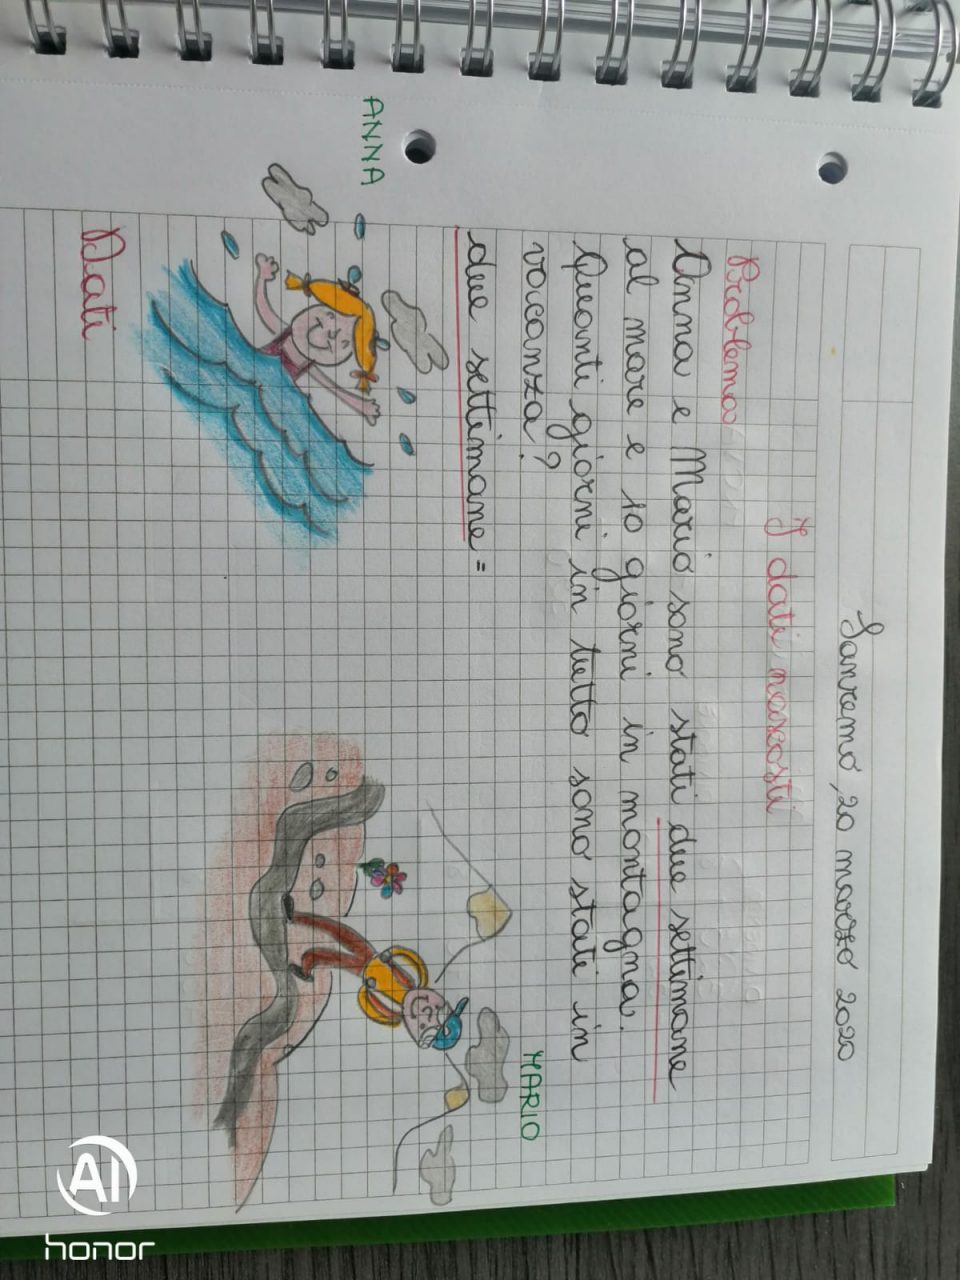 Sanremo, 20 marzo 2020
I dati nascosti
Problema
Anna e Mario sono stati due settimane
al mare e 10 giorni in montagna.
Quanti giorni in tutto sono stati in
vacanza?
due settimane =
ANNA
MARIO
Dati
AI
honor